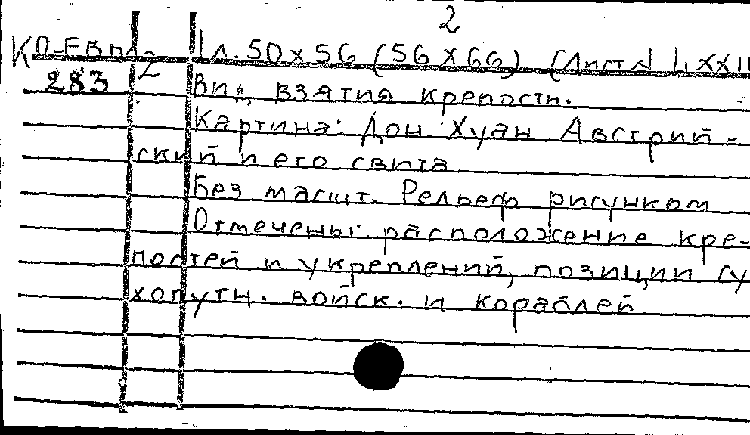 2
КО-Евп-2 1 л. 50 x 56 (56 x 66) (Листы I, XXII
283 2 Вид взятия крепости.
Картина: Дон Хуан Австрий-
ский и его свита
Без масшт. Рельеф рисунком
Отмечены: расположение кре-
постей и укреплений, позиции су-
хопутн. войск. и кораблей